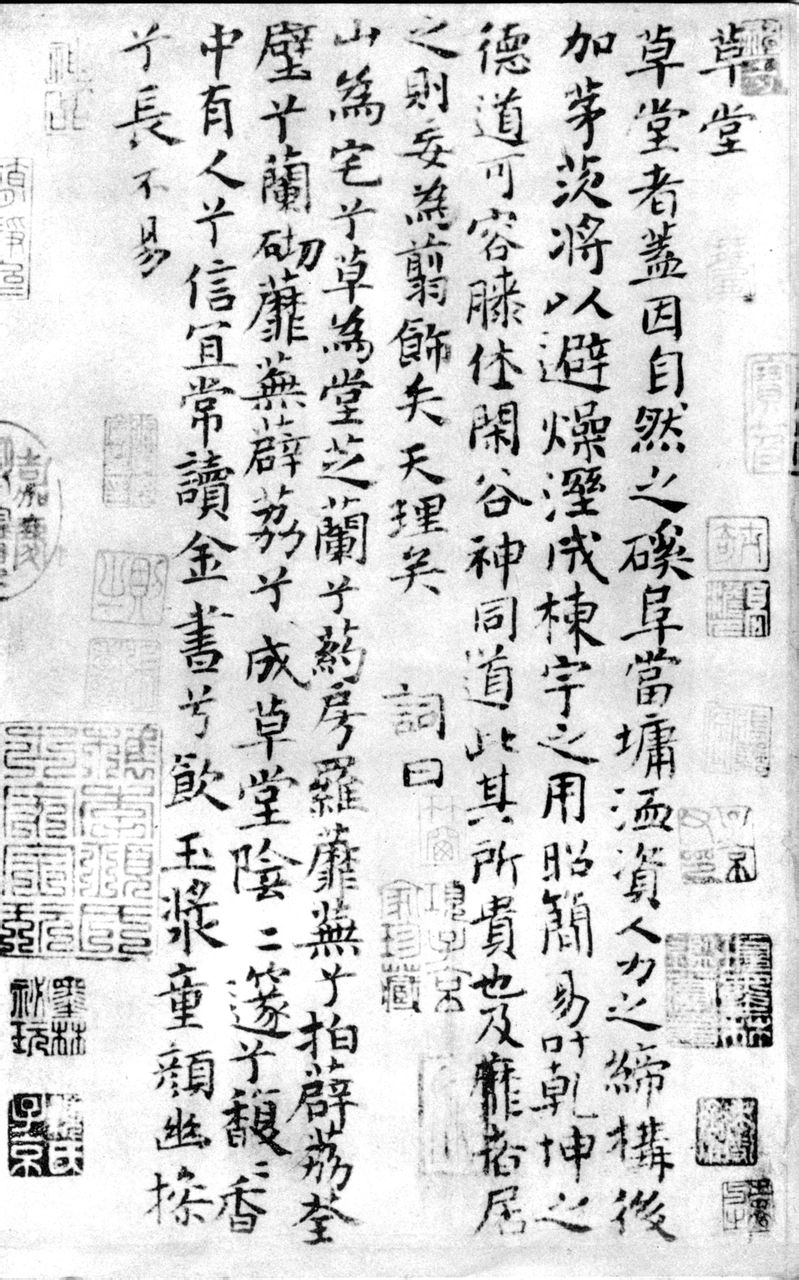 草堂
草堂者蓋因自然之磎阜當墉洫資人力之締構後
加茅茨將以避燥溼成棟宇之用昭簡易叶乾坤之
德道可容膝休閑谷神同道此其所貴也及靡者居
之則妄為翦飾失天理矣 詞曰
山為宅兮草為堂芝蘭兮葯房羅蘼蕪兮拍薜荔荃
壁兮蘭砌蘼蕪薜荔兮成草堂陰二邃兮馥二香
中有人兮信宜常讀金書兮飲玉漿童顏幽操
兮長不易
項子京家珍藏
墨林祕玩
嘉慶